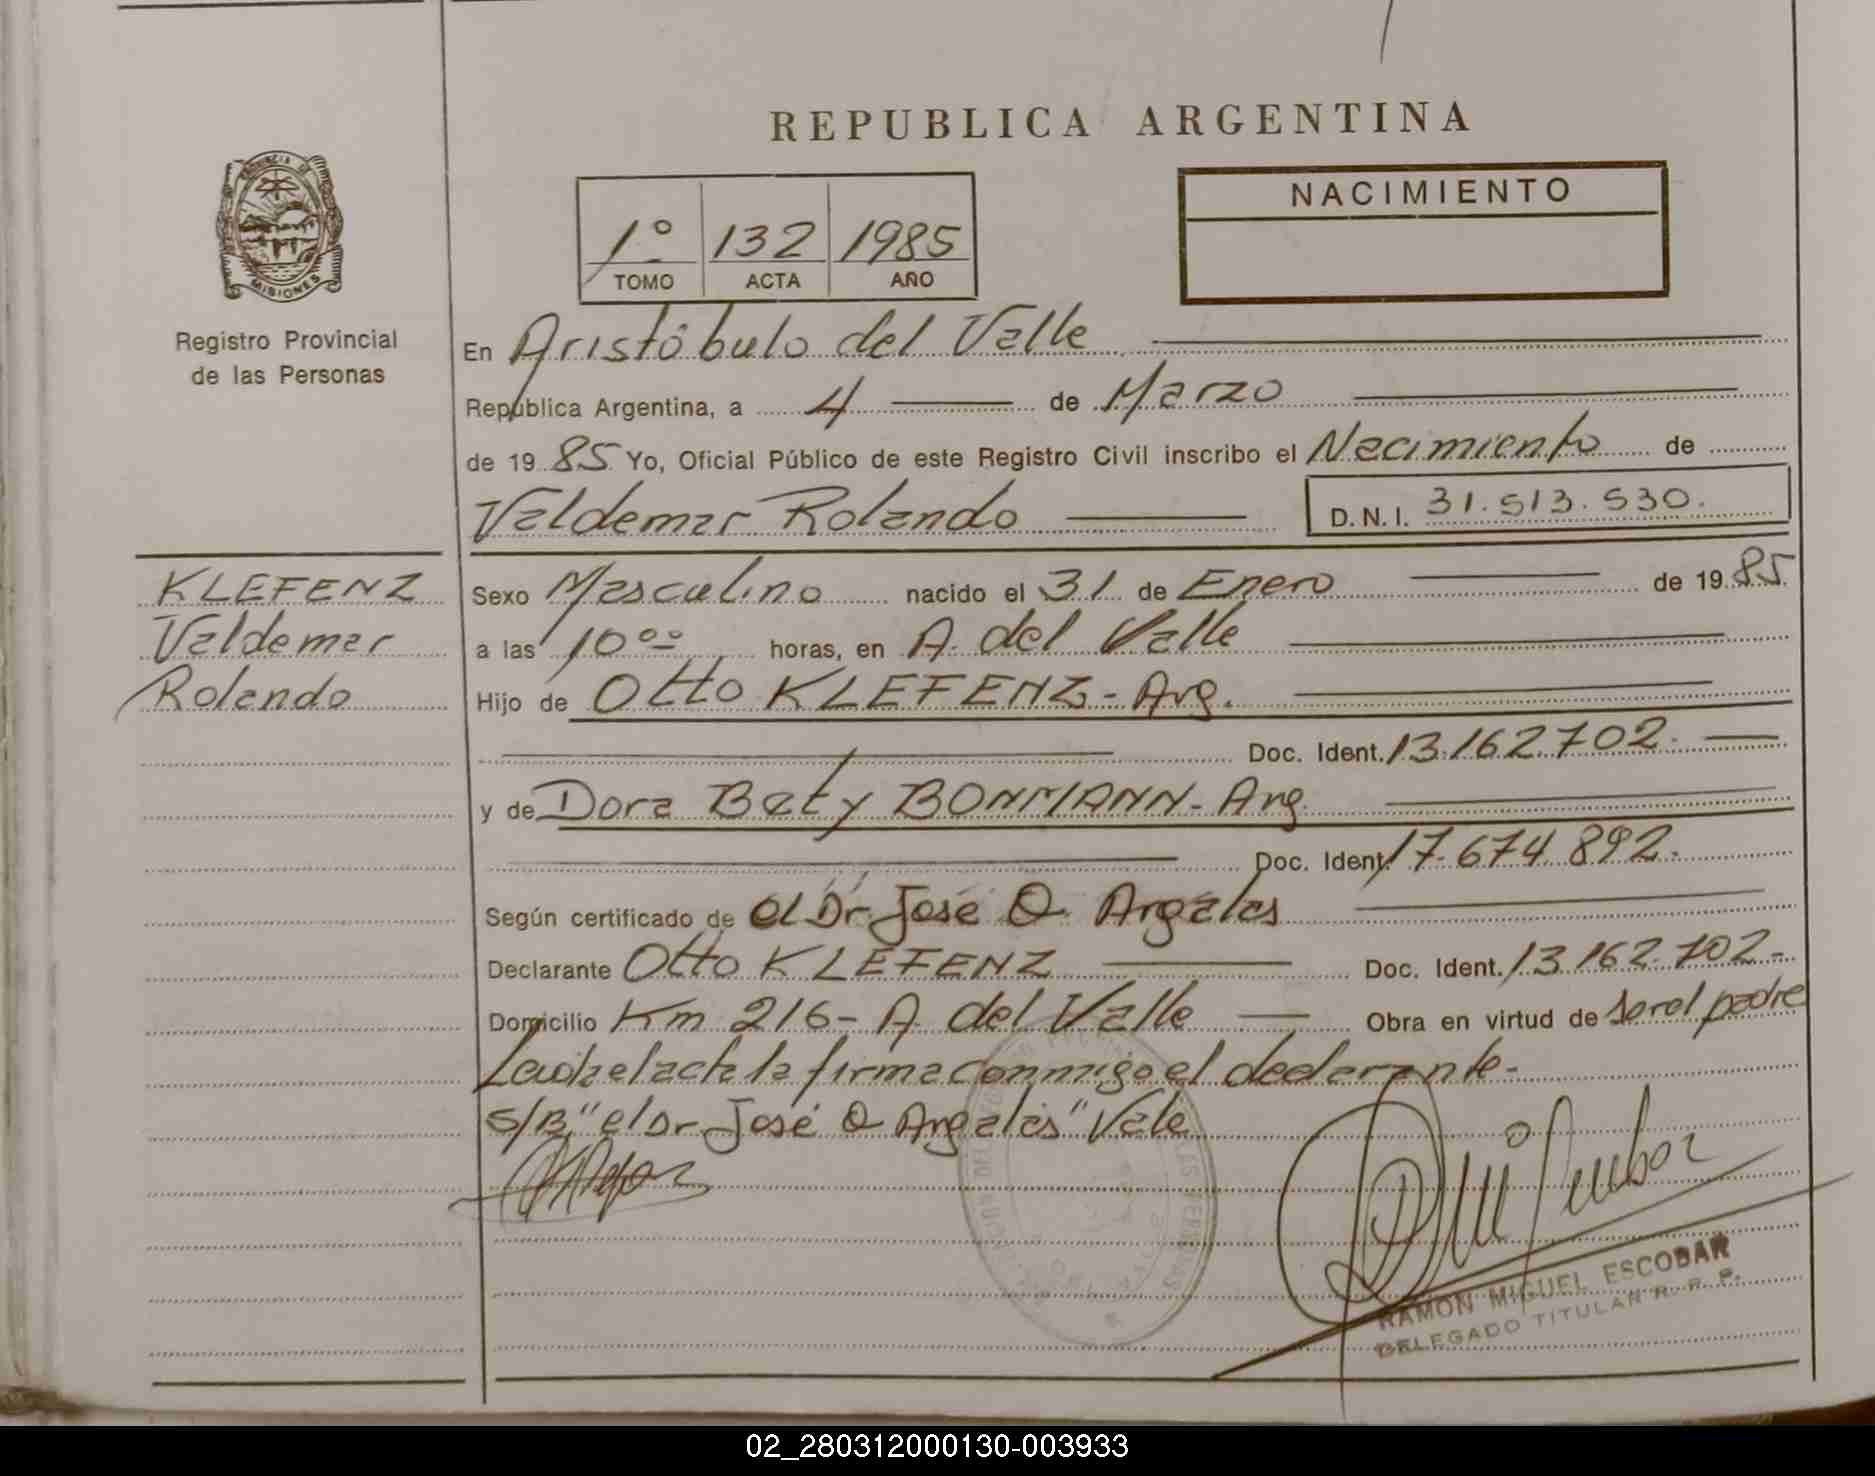 REPUBLICA ARGENTINA
PROVINCIA DE
MISIONES
Registro Provincial
de las Personas
1º 132 1985
TOMO ACTA AÑO
NACIMIENTO
En Aristóbulo del Valle
República Argentina, a 4 de Marzo
de 1985 Yo, Oficial Público de este Registro Civil inscribo el Nacimiento de
Valdemar Rolando D.N.I. 31.513.530.
KLEFENZ
Valdemar
Rolando
Sexo Masculino nacido el 31 de Enero de 1985
a las 10ºº horas, en A. del Valle
Hijo de Otto KLEFENZ - Arg.
Doc. Ident. 13.162.702.
y de Dora Bety BONMANN - Arg
Doc. Ident. 17.674.892.
Según certificado de el Dr José O. Argalas
Declarante Otto KLEFENZ Doc. Ident. 13.162.702-
Domicilio Km 216 - A. del Valle Obra en virtud de ser el padre
Leida el acta la firma conmigo el declarante.-
S/R "el Dr José O Argalas" Vale
RAMON MIGUEL ESCOBAR
DELEGADO TITULAR R. P. P.
02_280312000130-003933